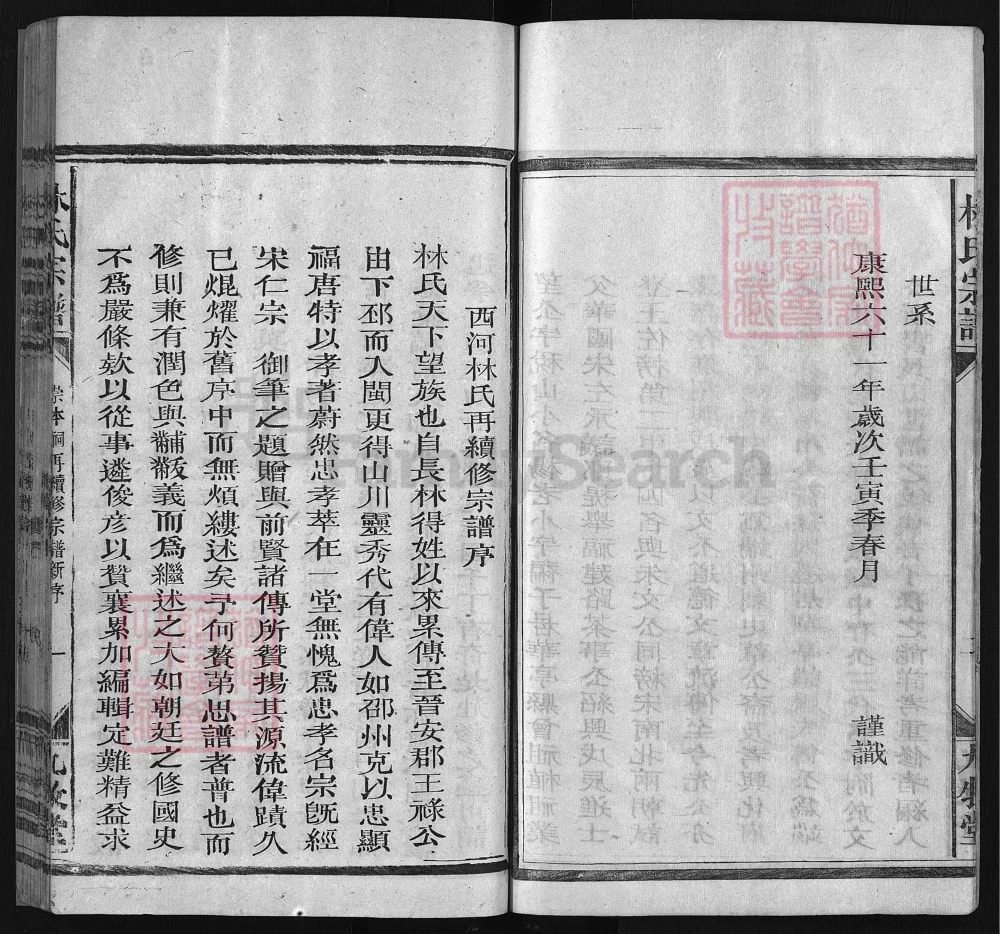 世系
康熙六十一年歲次壬寅季春月 謹識
西河林氏再續修宗譜序
林氏天下望族也自長林得姓以來累傳至晉安郡王祿公
由下邳而入閩更得山川靈秀代有偉人如邵州克以忠顯
福唐特以孝著蔚然忠孝萃在一堂無愧爲忠孝名宗旣經
宋仁宗 御筆之題贈與前賢諸傳所贊揚其源流偉蹟久
已焜耀於舊序中而無煩縷述矣予何贅第思譜者普也而
修則兼有潤色與黼黻義而爲繼述之大如朝廷之修國史
不爲嚴條欸以從事遴俊彥以贊襄累加編輯定難精益求
林氏宗譜
崇 祠再續修宗譜新序
一
九牧堂
林氏宗譜
九牧堂
FamilySearch